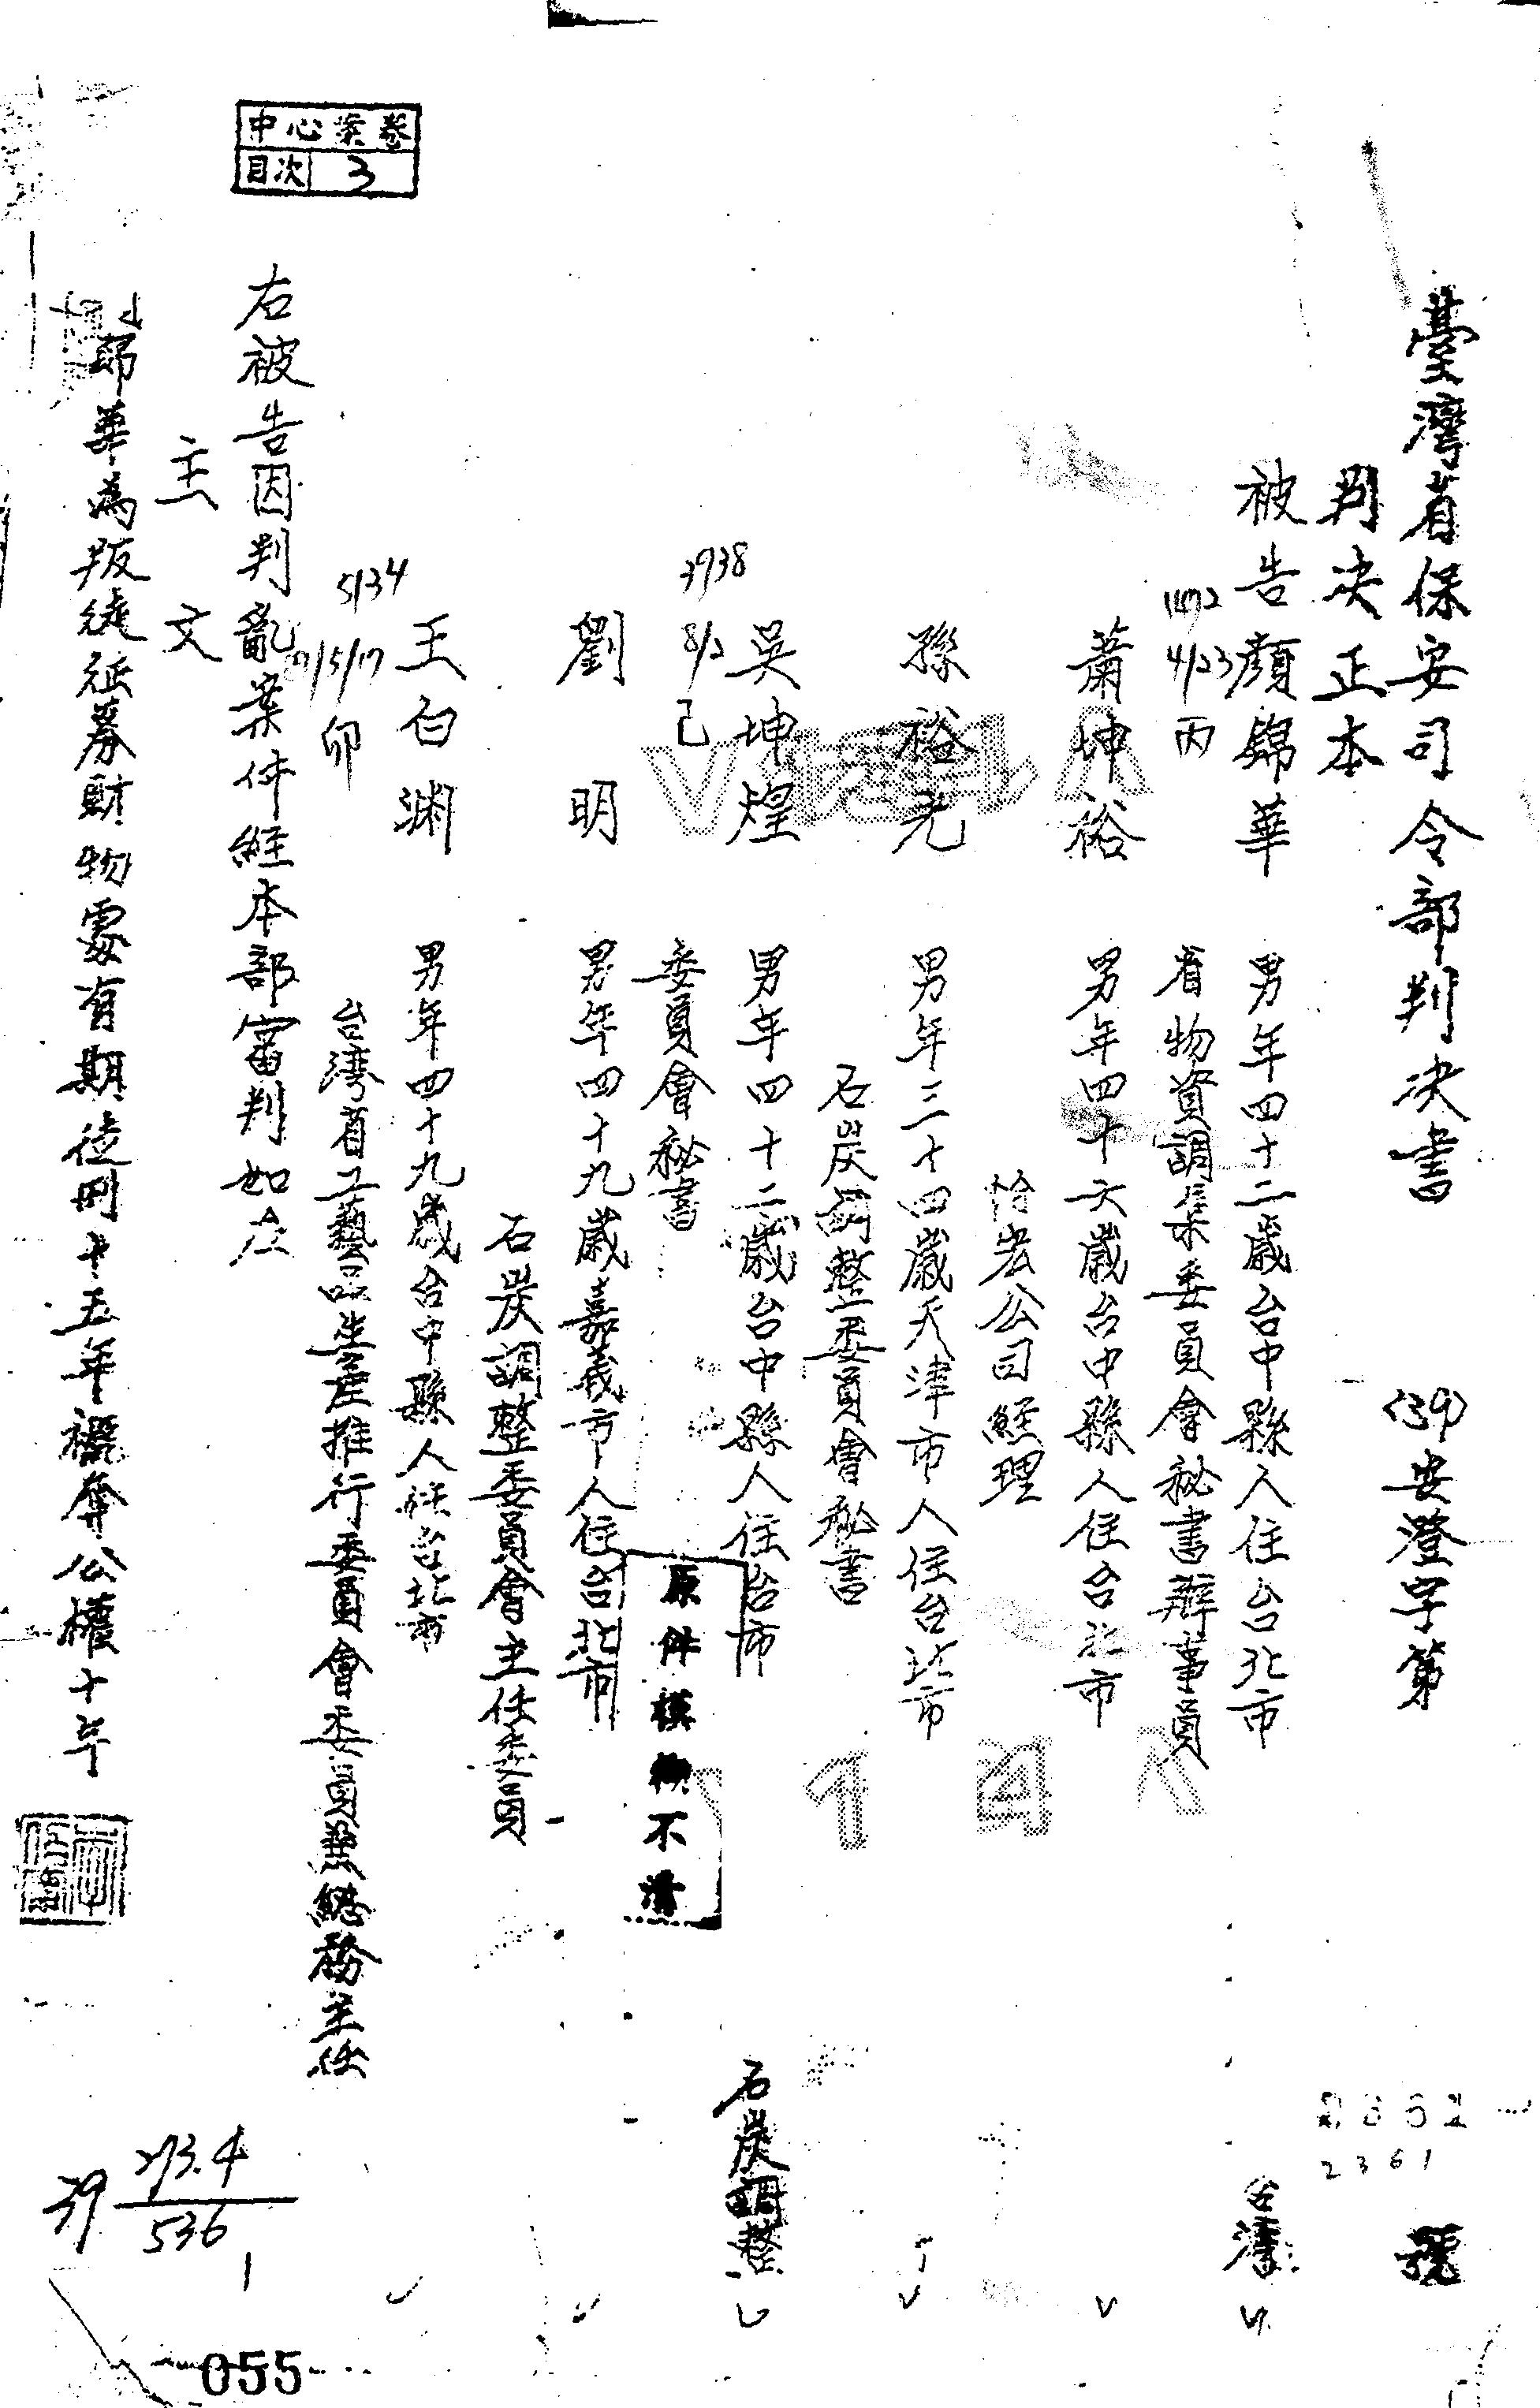 臺灣省保安司令部判決書 (39)安澄字第 2362 2361 號
判決正本
被告 顏錦華 男年四十二歲台中縣人住台北市 台灣
省物資調集委員會秘書辦事員
蕭坤裕 男年四十六歲台中縣人住台北市
怡宏公司經理
孫裕光 男年三十四歲天津市人住台北市
石炭調整委員會秘書
吳坤煌 男年四十二歲台中縣人住台市 石炭調整
委員會秘書
劉明 男年四十九歲嘉義市人住台北市
石炭調整委員會主任委員
王白渊 男年四十九歲台中縣人住台北市
台湾省工藝品生產推行委員會委員兼總務主任
右被告因判亂案件經本部審判如左
主文
錦華為叛徒征募財物處有期徒刑十五年褫奪公權十年
中心案卷
目次 3
4/23 丙
3938
8/2 己
5134
5/17 卯
原件模糊不清
39 273.4
536
1
055